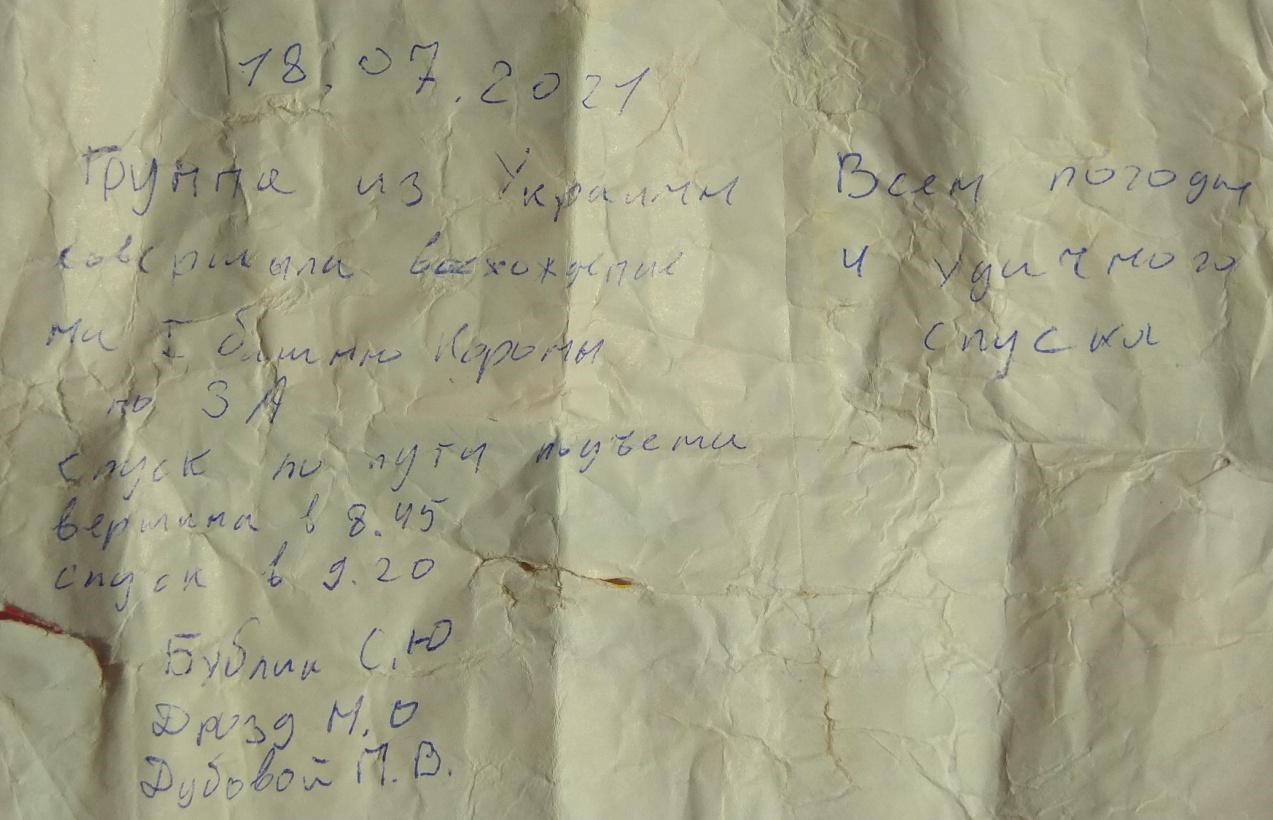 18.07.2021
Группа из Украины
совершила восхождение
на I башню Короны
по 3А
спуск по пути подъема
вершина в 8.45
спуск в 9.20
Бублик С.Ю
Дрозд М.О
Дубовой П.В.
Всем погоды
и удачного
спуска